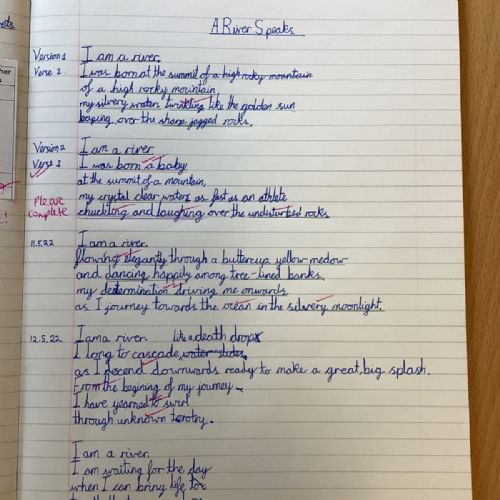 A River Speaks
Version 1 I am a river.
Verse 1 I was born at the summit of a high rocky mountain
of a high rocky mountain,
my silvery waters twinkling like the golden sun
leaping over the sharp jagged rocks.
Version 2 I am a river
Verse 1 I was born a baby
at the summit of a mountain,
my crystal clear waters as fast as an athlete
Please complete
chuckling and laughing over the undisturbed rocks
11.5.22 I am a river.
flowing elegantly through a buttercup yellow medow
and dancing happily among tree-lined banks,
my determination driving me onwards
as I journey towards the ocean in the silvery moonlight.
12.5.22 I am a river. like a death drop
I long to cascade water slides,
as I decend downwards ready to make a great, big splash.
From the begining of my journey
I have yearned to swirl
through unknown
I am a river.
I am waiting for the day
when I can bring life to